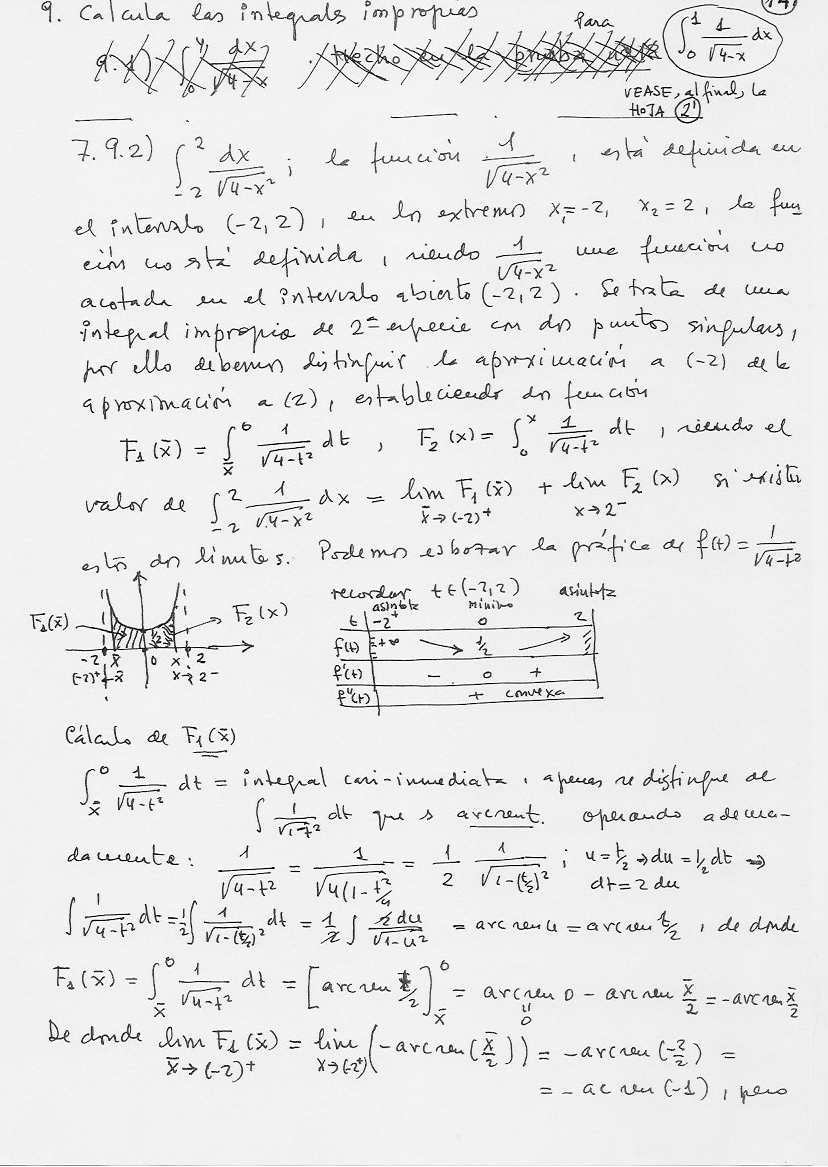 9. Calcula las integrales impropias
(14)
9.1) ∫₀⁴ dx/√(4-x) . Hecho en la prueba
Para ∫₀¹ 1/√(4-x) dx
VEASE, al final, la
HOJA (2')
7.9.2) ∫₋₂² dx/√(4-x²) ; la función 1/√(4-x²) , está definida en
el intervalo (-2,2), en los extremos x₁=-2, x₂=2, la fun
ción no está definida, siendo 1/√(4-x²) una función no
acotada en el intervalo abierto (-2,2). Se trata de una
integral impropia de 2ª especie con dos puntos singulares,
por ello debemos distinguir la aproximación a (-2) de la
aproximación a (2), estableciendo dos función
F₁(x̄) = ∫_x̄^0 1/√(4-t²) dt , F₂(x) = ∫₀ˣ 1/√(4-t²) dt , siendo el
valor de ∫₋₂² 1/√(4-x²) dx = lim_{x̄→(-2)⁺} F₁(x̄) + lim_{x→2⁻} F₂(x) si existen
estos dos límites. Podemos esbozar la gráfica de f(t) = 1/√(4-t²)
F₁(x̄) F₂(x)
-2 x̄ 0 x 2
(-2)⁺←x̄ x→2⁻
1/2
recordar t∈(-2,2) asíntota
asíntota mínimo
t -2⁺ 0 2
f(t) +∞ 1/2
f'(t) - 0 +
f''(t) + convexa
Cálculo de F₁(x̄)
∫_x̄^0 1/√(4-t²) dt = integral casi-inmediata, apenas se distingue de
∫ 1/√(1-t²) dt que es arcsent. operando adecua-
damente: 1/√(4-t²) = 1/√(4(1-t²/4)) = 1/2 1/√(1-(t/2)²) ; u=t/2 → du=1/2 dt ⇒
dt=2du
∫ 1/√(4-t²) dt = 1/2 ∫ 1/√(1-(t/2)²) dt = 1/2 ∫ 2du/√(1-u²) = arcsenu = arcsen t/2 , de donde
F₁(x̄) = ∫_x̄^0 1/√(4-t²) dt = [arcsen t/2]_x̄^0 = arcsen 0 - arcsen x̄/2 = -arcsen x̄/2
॥
0
De donde lim_{x̄→(-2)⁺} F₁(x̄) = lim_{x→(-2⁺)} (-arcsen(x̄/2)) = -arcsen(-2/2) =
= -ac sen(-1), pero